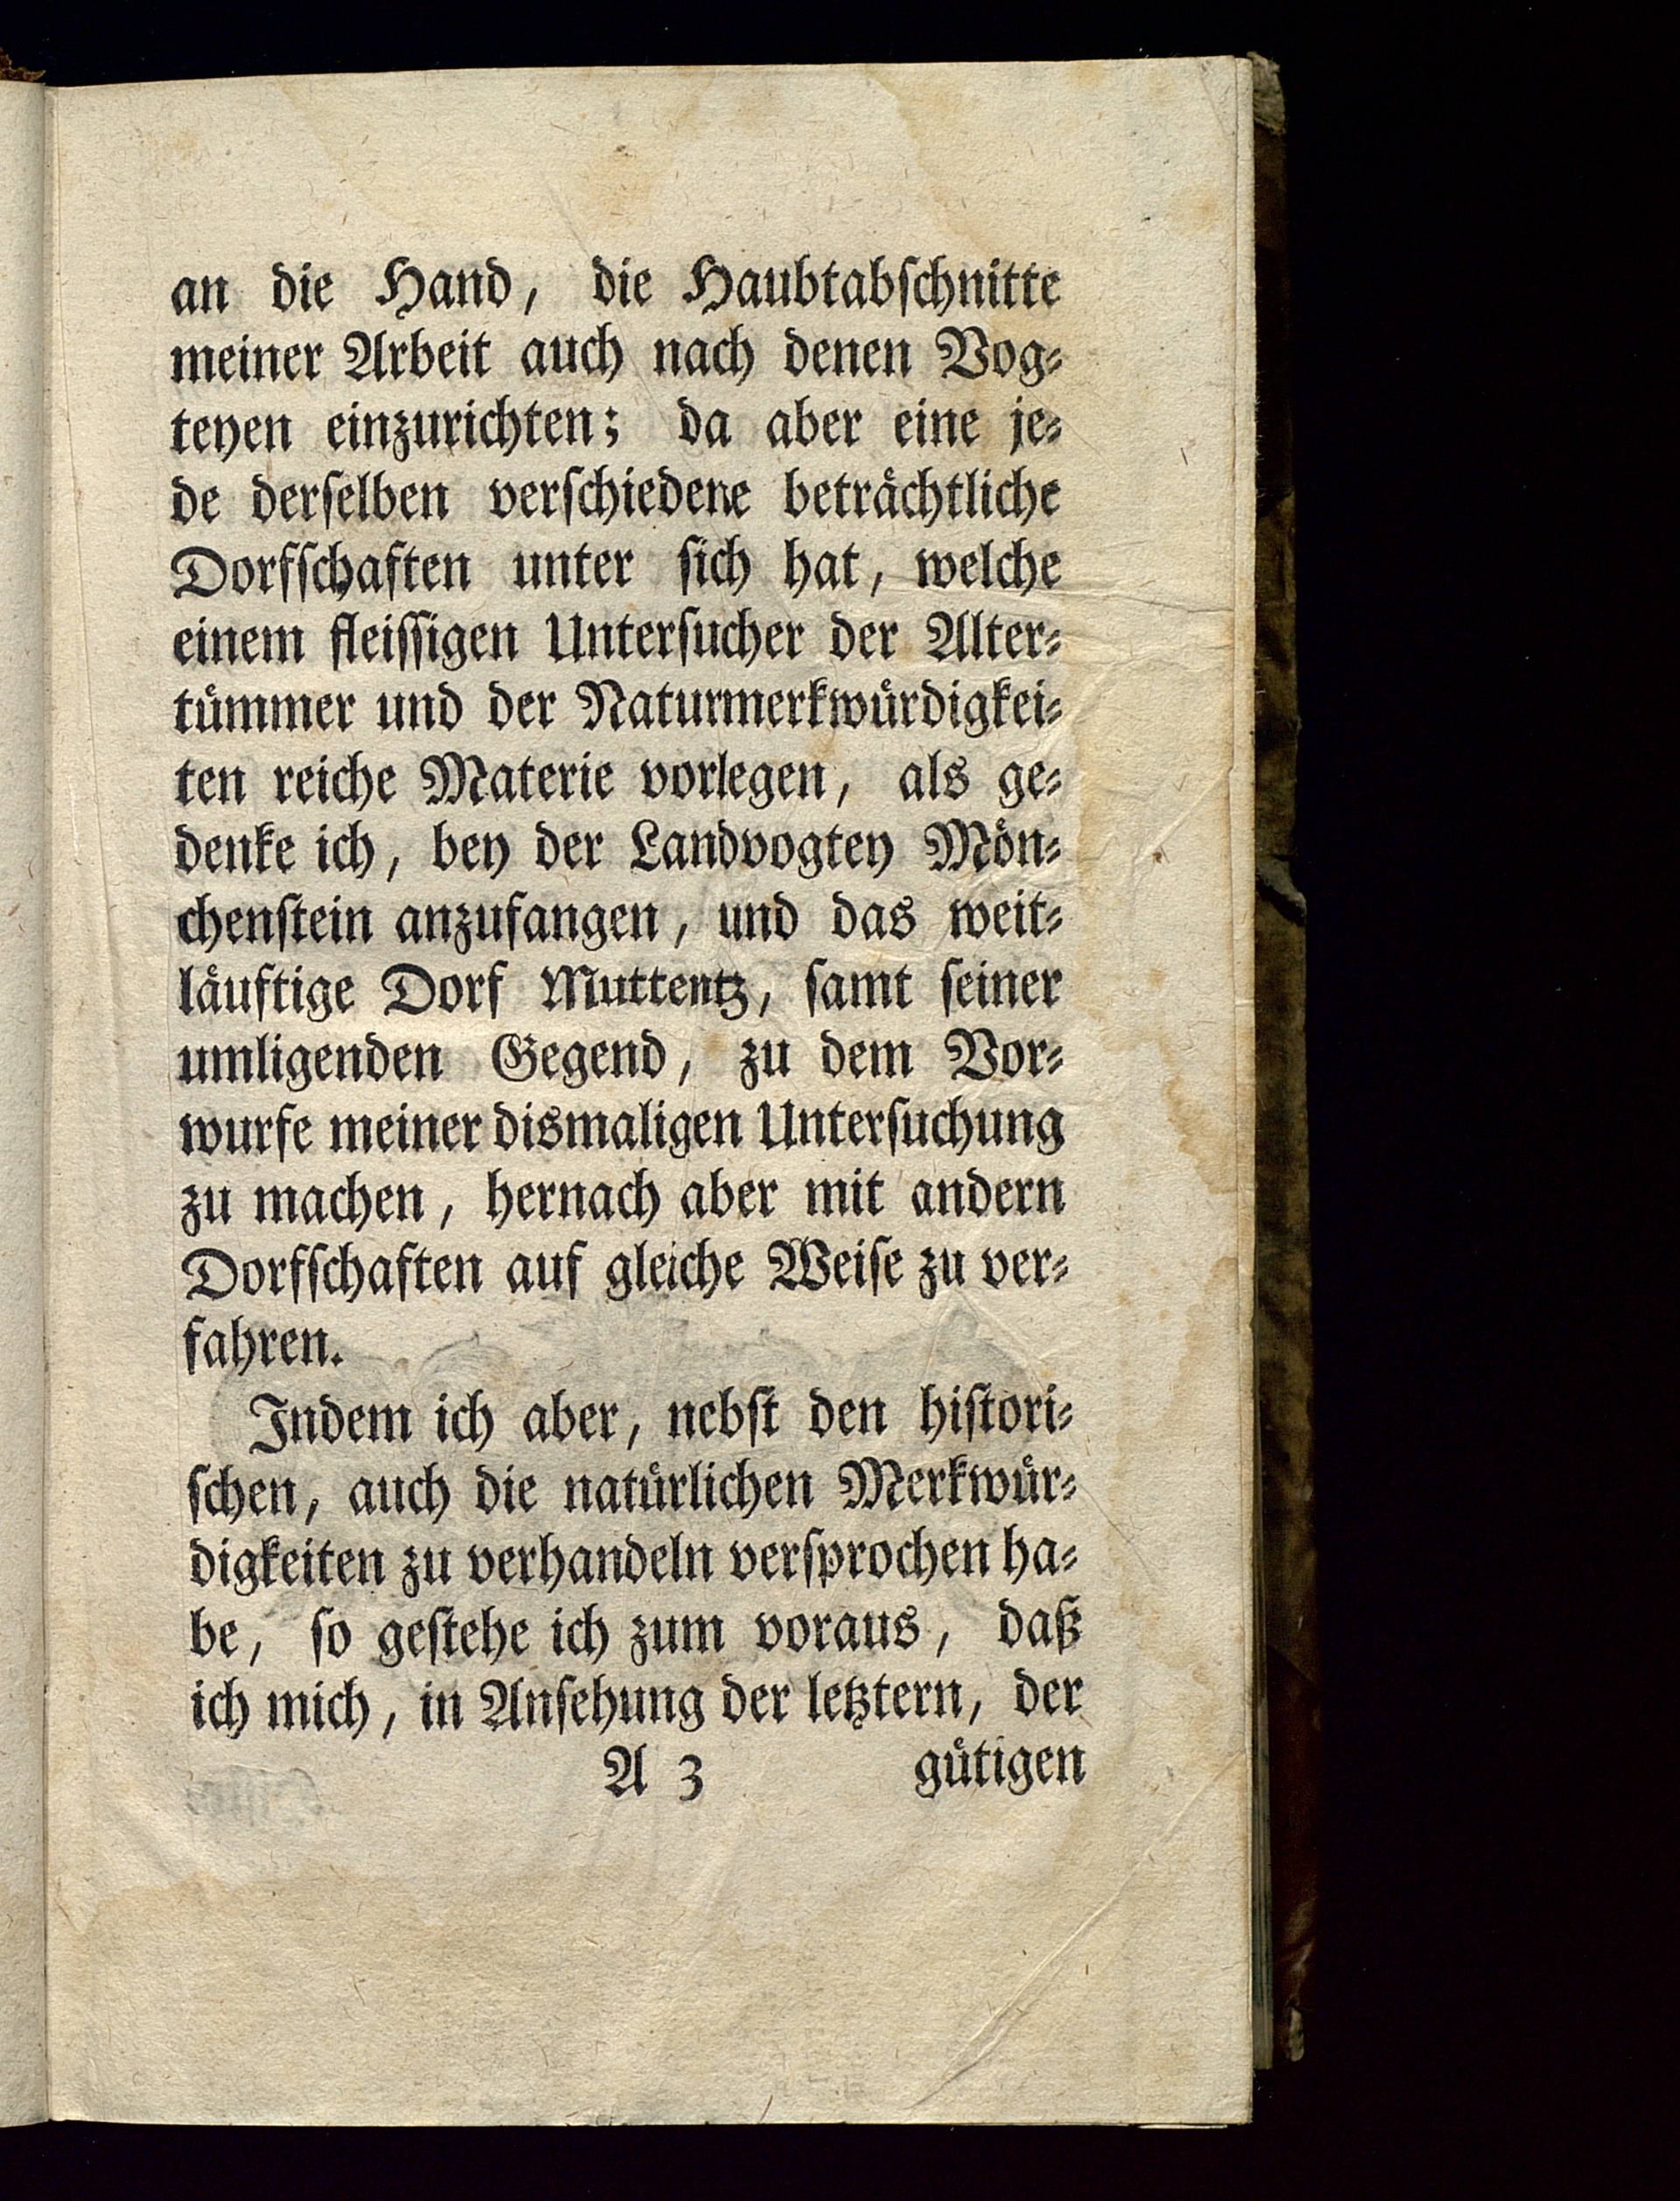 an die Hand, die Haubtabſchnitte
meiner Arbeit auch nach denen Vog⸗
teyen einzurichten; da aber eine je⸗
de derſelben verſchiedene betraͤchtliche
Dorfſchaften unter ſich hat, welche
einem fleiſſigen Unterſucher der Alter⸗
tuͤmmer und der Naturmerkwuͤrdigkei⸗
ten reiche Materie vorlegen, als ge⸗
denke ich, bey der Landvogtey Moͤn⸗
chenſtein anzufangen, und das weit⸗
laͤuftige Dorf Muttentz, ſamt ſeiner
umligenden Gegend, zu dem Vor⸗
wurfe meiner dismaligen Unterſuchung
zu machen, hernach aber mit andern
Dorfſchaften auf gleiche Weiſe zu ver⸗
fahren.
Indem ich aber, nebſt den hiſtori⸗
ſchen, auch die natuͤrlichen Merkwuͤr⸗
digkeiten zu verhandeln verſprochen ha⸗
be, ſo geſtehe ich zum voraus, daß
ich mich, in Anſehung der letztern, der
A 3 guͤtigen